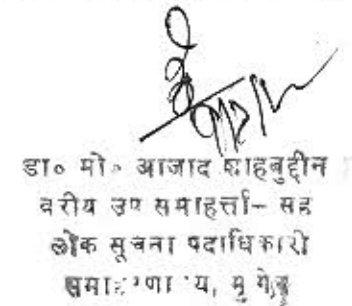 डा० मो० आजाद शाहबुद्दीन
वरीय उप समाहर्त्ता- सह
लोक सूचना पदाधिकारी
मुंगेर